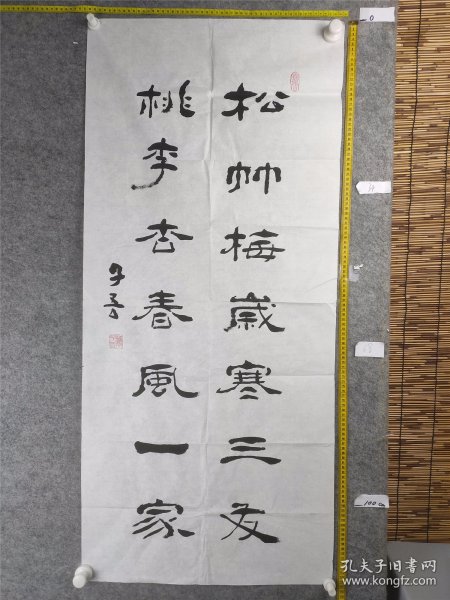 松竹梅歲寒三友
桃李杏春風一家
0
100cm
孔夫子旧书网
www.kongfz.com